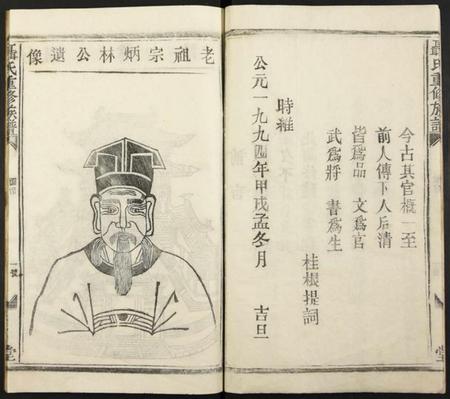 今古其官概一至
前人傳下人后清
皆爲品 文爲官
武爲將 書爲生
桂根提詞
時維
公元一九九四年甲戌孟冬月 吉旦
老祖宗炳林公遺像
聶氏重修族譜
聶氏重修族譜
一號
堂
堂